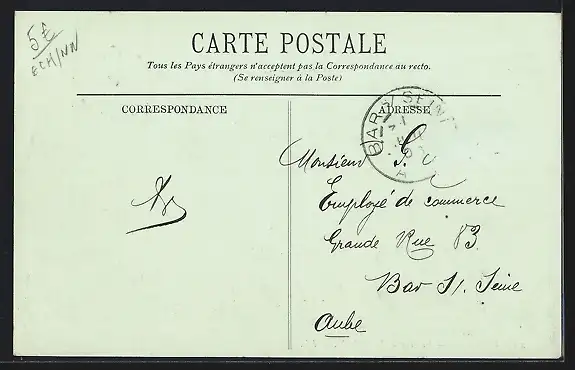 5£
CARTE POSTALE
Tous les Pays étrangers n'acceptent pas la Correspondance au recto.
(Se renseigner à la Poste)
CORRESPONDANCE
ADRESSE
BAR S/ SEINE
Monsieur G.
Employé de commerce
Grande Rue 83
Bar S/. Seine
Aube